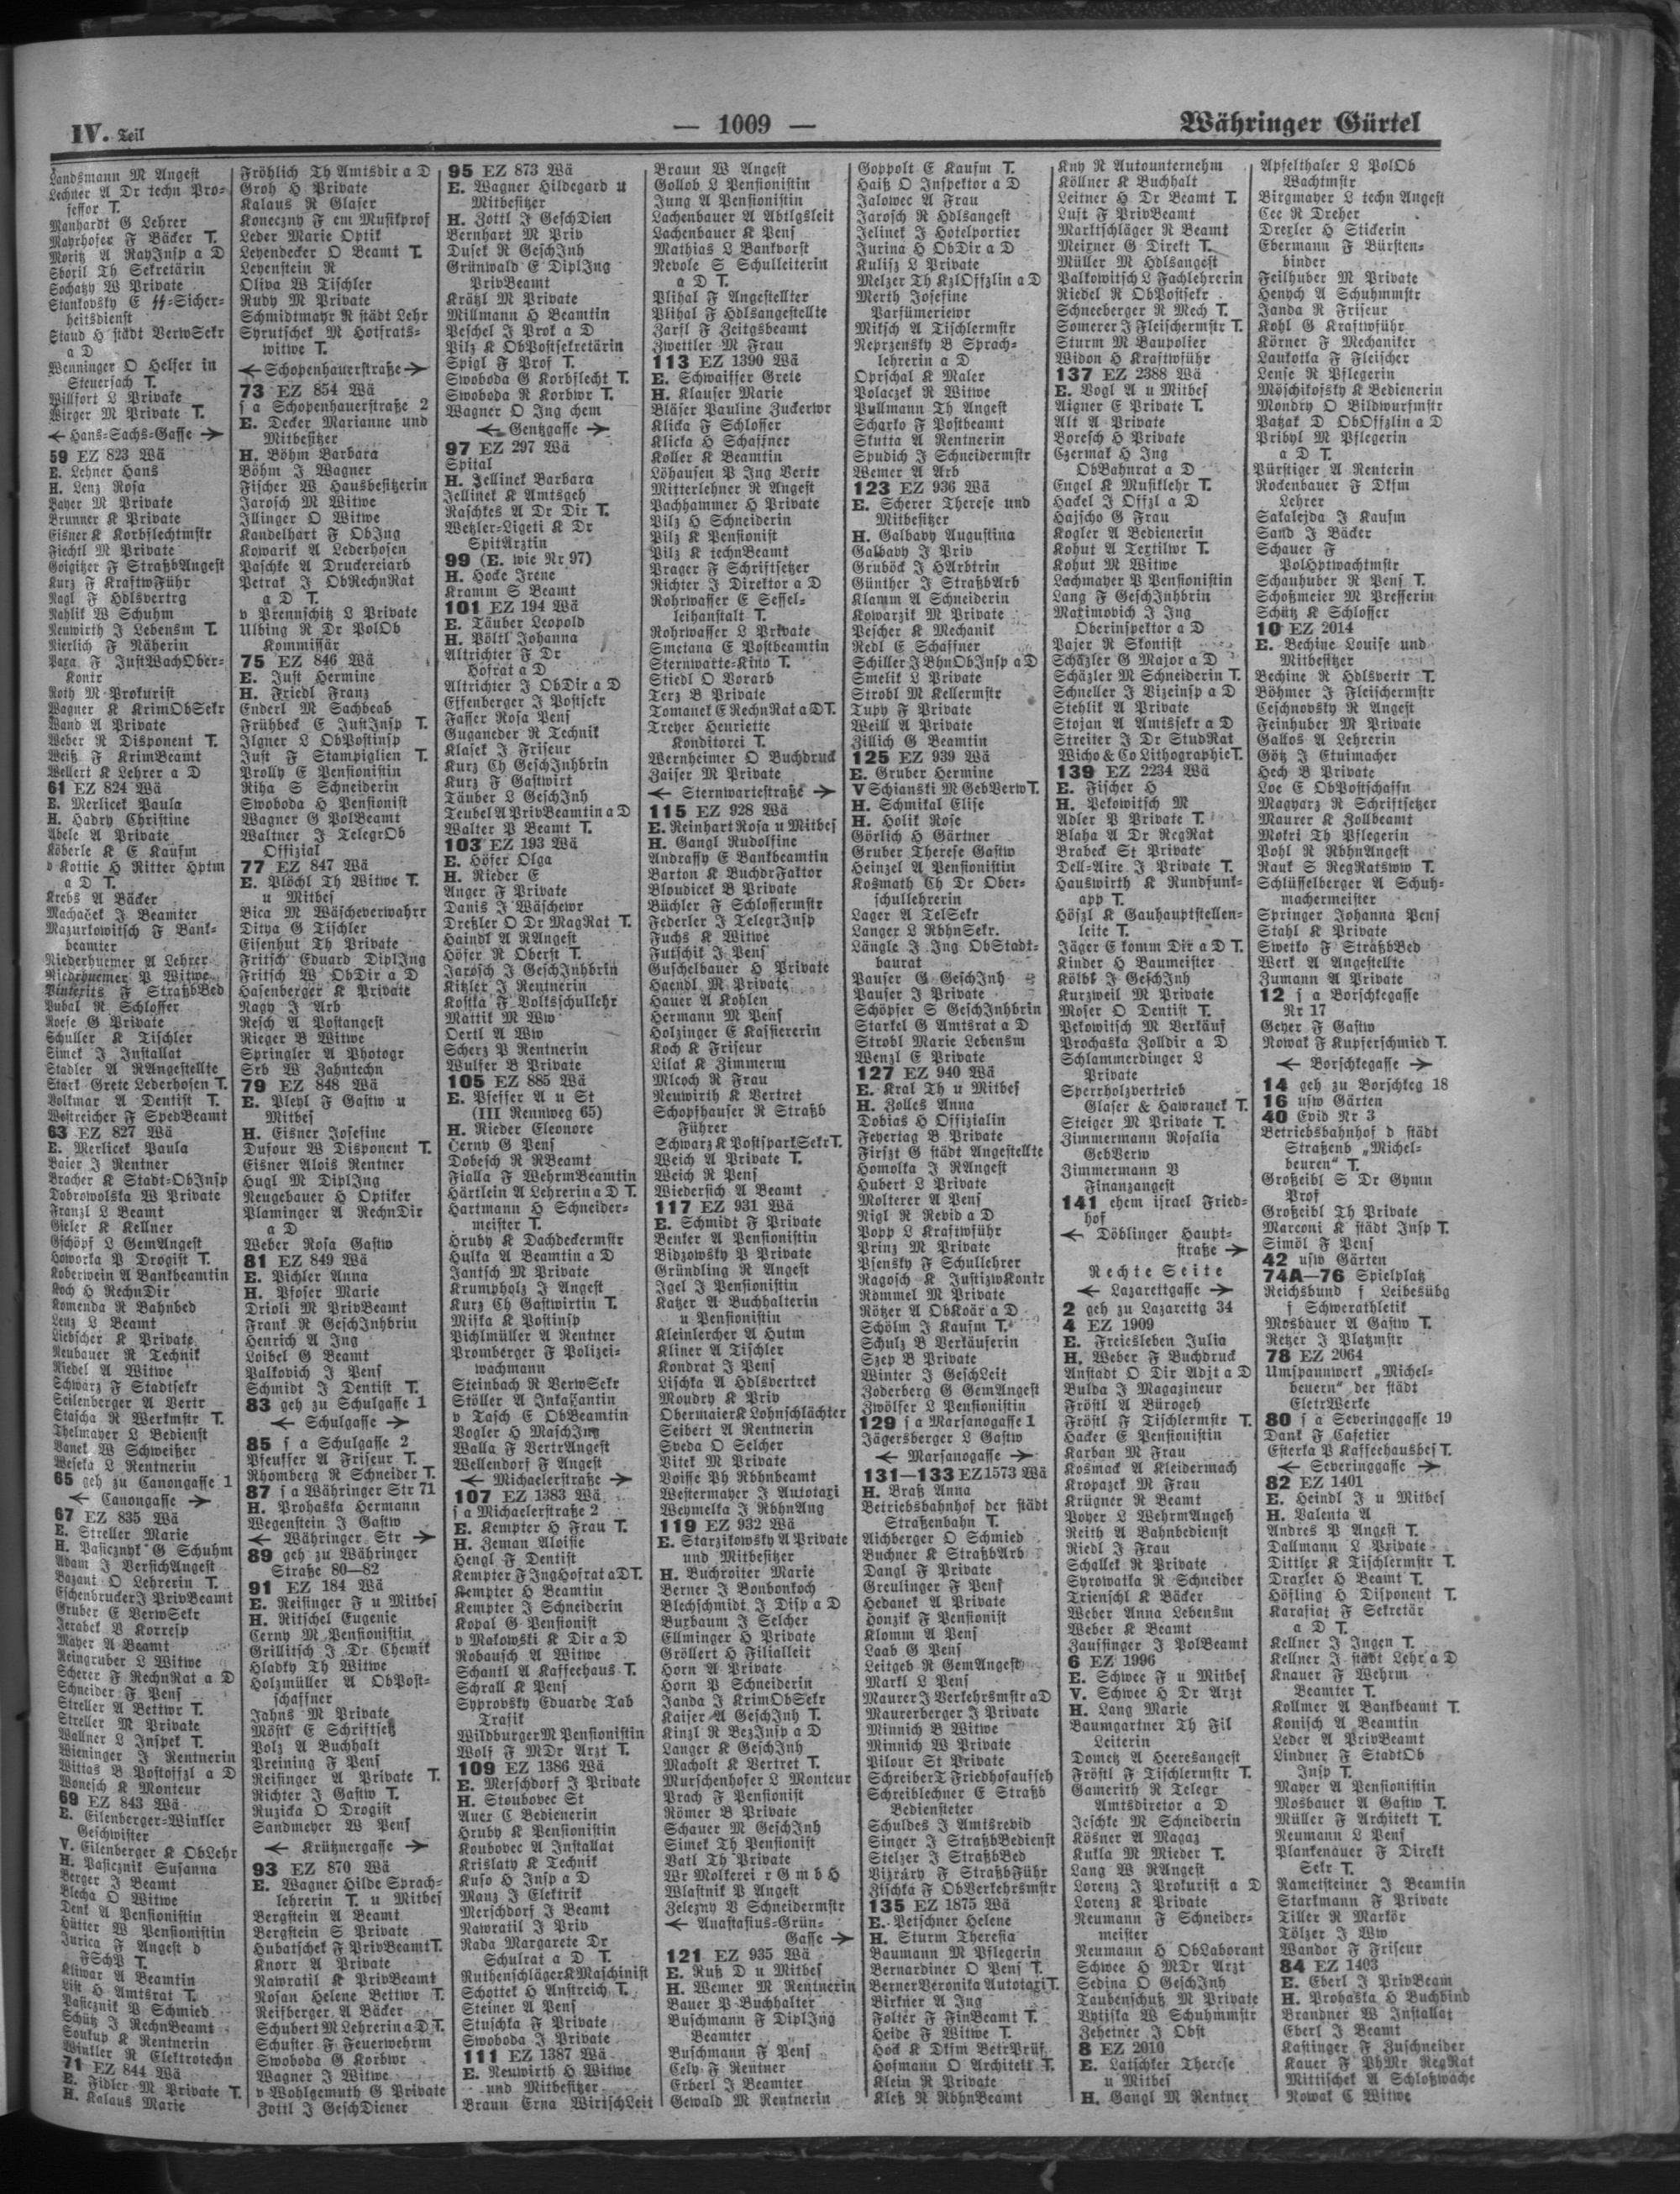 IV. Teil
— 1009 —
Währinger Gürtel
Landsmann M Angest
Lechner A Dr techn Pro-
fessor T.
Manhardt G Lehrer
Mayrhofer F Bäcker T.
Moritz A RayInsp a D
Sboril Th Sekretärin
Sochatzy W Private
Stankovsky E SS-Sicher-
heitsdienst
Staud H städt VerwSekr
a D
Wenninger O Helfer in
Steuersach T.
Willfort L Private
Wirger M Private T.
← Hans-Sachs-Gasse →
59 EZ 823 Wä
E. Lehner Hans
H. Lenz Rosa
Bayer M Private
Brunner K Private
Eisner K Korbflechtmstr
Fiechtl M Private
Goigitzer F StraßbAngest
Kurz F KraftwFühr
Nagl F Hdlsvertrg
Nahlik W Schuhm
Neuwirth J Lebensm T.
Nierlich F Näherin
Paxa F JustWachOber-
Kontr
Roth M Prokurist
Wagner K KrimObSekr
Wand A Private
Weber R Disponent T.
Weiß F KrimBeamt
Wellert K Lehrer a D
61 EZ 824 Wä
E. Merlicek Paula
H. Hadry Christine
Abele A Private
Köberle K E Kaufm
v Kottie H Ritter Hptm
a D T.
Krebs A Bäcker
Machaček J Beamter
Mazurkowitsch F Bank-
beamter
Niederhuemer A Lehrer
Niederhuemer P Witwe
F StraßbBed
Pubal R Schlosser
Roese G Private
Schuller K Tischler
Simek J Installat
Stadler A RAngestellte
Stark Grete Lederhosen T.
Voltmar A Dentist T.
Westreicher F SpedBeamt
63 EZ 827 Wä
E. Merlicek Paula
Baier J Rentner
Bracher K Stadt-ObInsp
Dobrowolska W Private
Franzl L Beamt
Gieler K Kellner
Gschöpf L GemAngest
Howorka P Drogist T.
Koberwein A Bankbeamtin
Koch H RechnDir
Komenda R Bahnbed
Lenz L Beamt
Liebscher K Private
Neubauer R Technik
Riedel A Witwe
Schwarz F Stadtsekr
Seilenberger A Vertr
Stascha R Werkmstr T.
Thelmayer L Bedienst
Vanek W Schweißer
Weseka L Rentnerin
65 geh zu Canongasse 1
← Canongasse →
67 EZ 835 Wä
E. Streller Marie
H. Pasicznyk G Schuhm
Adam J VersichAngest
Bazant O Lehrerin T.
Eschenbrucker J PrivBeamt
Gruber E VerwSekr
Jerabek V Korresp
Mayer A Beamt
Reingruber L Witwe
Scherer F RechnRat a D
Schneider F Pens
Streller A Bettwr T.
Streller M Private
Wallner L Inspek T.
Wieninger J Rentnerin
Wittas B Postoffzl a D
Wonesch K Monteur
69 EZ 843 Wä
E. Eilenberger-Winkler
Geschwister
V. Eilenberger K ObLehr
H. Pasicznik Susanna
Berger J Beamt
Blecha O Witwe
Denk A Pensionistin
Hütter W Pensionistin
Jurica F Angest d
FSchP T.
Kliwar A Beamtin
List H Amtsrat T.
Pasicznik V Schmied
Schütz J RechnBeamt
Soukup K Rentnerin
Winkler R Elektrotechn
71 EZ 844 Wä
E. Fidler M Private T.
H. Kalaus Marie
Fröhlich Th Amtsdir a D
Groh H Private
Kalaus R Glaser
Koneczny F em Musikprof
Leder Marie Optik
Leyendecker O Beamt T.
Leyenstein R
Oliva W Tischler
Rudy M Private
Schmidtmayr R städt Lehr
Syrutschek M Hofrats-
witwe T.
← Schopenhauerstraße →
73 EZ 854 Wä
s a Schopenhauerstraße 2
E. Decker Marianne und
Mitbesitzer
H. Böhm Barbara
Böhm J Wagner
Fischer W Hausbesitzerin
Jarosch M Witwe
Illinger O Witwe
Kandelhart F ObIng
Kowarik A Lederhosen
Paschke A Druckereiarb
Petrak J ObRechnRat
a D T.
v Prennschitz L Private
Ulbing R Dr PolOb
Kommissär
75 EZ 846 Wä
E. Just Hermine
H. Friedl Franz
Enderl M Sachbeab
Frühbeck E JustInsp T.
Ilgner L ObPostinsp
Just F Stampiglien T.
Prolly E Pensionistin
Riha S Schneiderin
Swoboda H Pensionist
Wagner G PolBeamt
Waltner J TelegrOb
Offizial
77 EZ 847 Wä
E. Plöchl Th Witwe T.
u Mitbes
Bica M Wäscheverwahrr
Ditya G Tischler
Eisenhut Th Private
Fritsch Eduard DiplIng
Fritsch W ObDir a D
Hasenberger K Private
Nagy J Arb
Resch A Postangest
Rieger B Witwe
Springler A Photogr
Srb W Zahntechn
79 EZ 848 Wä
E. Pleyl F Gastw u
Mitbes
H. Eisner Josefine
Dufour W Disponent T.
Eisner Alois Rentner
Hugl M DiplIng
Neugebauer H Optiker
Plaminger A RechnDir
a D
Weber Rosa Gastw
81 EZ 849 Wä
E. Pichler Anna
H. Pfoser Marie
Drioli M PrivBeamt
Frank R GeschInhbrin
Henrich A Ing
Loibel G Beamt
Palkovich J Pens
Schmidt J Dentist T.
83 geh zu Schulgasse 1
← Schulgasse →
85 s a Schulgasse 2
Pfeuffer A Friseur T.
Rhomberg R Schneider T.
87 s a Währinger Str 71
H. Prohaska Hermann
Wegenstein J Gastw
← Währinger Str →
89 geh zu Währinger
Straße 80—82
91 EZ 184 Wä
E. Reisinger F u Mitbes
H. Ritschel Eugenie
Cerny M Pensionistin
Grillitsch J Dr Chemik
Hladky Th Witwe
Holzmüller A ObPost-
schaffner
Jahns M Private
Mößl E Schriftsetz
Polz A Buchhalt
Preining F Pens
Reisinger A Private T.
Richter J Gastw T.
Ruzicka O Drogist
Sandmeyer W Pens
← Krütznergasse →
93 EZ 870 Wä
E. Wagner Hilde Sprach-
lehrerin T. u Mitbes
Bergstein A Beamt
Bergstein S Private
Hubatschek F PrivBeamt T.
Knorr A Private
Nawratil K PrivBeamt
Rosan Helene Bettwr T.
Reisberger A Bäcker
Schubert M Lehrerin a D T.
Schuster F Feuerwehrm
Swoboda G Korbwr
Wagner J Witwe
v Wohlgemuth G Private
Zottl J GeschDiener
95 EZ 873 Wä
E. Wagner Hildegard u
Mitbesitzer
H. Zottl J GeschDien
Bernhart M Priv
Dusek R GeschInh
Grünwald E DiplIng
PrivBeamt
Krätzl M Private
Millmann H Beamtin
Peschel J Prok a D
Pilz K ObPostsekretärin
Spigl F Prof T.
Swoboda G Korbflecht T.
Swoboda R Korbwr T.
Wagner O Ing chem
← Gentzgasse →
97 EZ 297 Wä
Spital
H. Jellinek Barbara
Jellinek K Amtsgeh
Raschkes A Dr Dir T.
Wetzler-Ligeti K Dr
SpitArztin
99 (E. wie Nr 97)
H. Hocke Irene
Kramm S Beamt
101 EZ 194 Wä
E. Täuber Leopold
H. Pöltl Johanna
Altrichter F Dr
Hofrat a D
Altrichter J ObDir a D
Effenberger J Postsekr
Fasser Rosa Pens
Guganeder R Technik
Klasek J Friseur
Kurz Ch GeschInhbrin
Kurz F Gastwirt
Täuber L GeschInh
Teubel A PrivBeamtin a D
Walter P Beamt T.
103 EZ 193 Wä
E. Höfer Olga
H. Rieder E
Anger F Private
Danis J Wäschewr
Dreßler O Dr MagRat T.
Haindl A RAngest
Höfer R Oberst T.
Jarosch J GeschInhbrin
Kitzler J Rentnerin
Kostka F Volksschullehr
Mattik M Ww
Oertl A Ww
Scherz P Rentnerin
Wulser B Private
105 EZ 885 Wä
E. Pfeffer A u St
(III Rennweg 65)
H. Rieder Eleonore
Černy G Pens
Dobesch R RBeamt
Fialla F WehrmBeamtin
Härtlein A Lehrerin a D T.
Hartmann H Schneider-
meister T.
Hruby K Dachdeckermstr
Hulka A Beamtin a D
Jantsch M Private
Krumpholz J Angest
Kurz Ch Gastwirtin T.
Miska K Postinsp
Pichlmüller A Rentner
Promberger F Polizei-
wachmann
Steinbach R VerwSekr
Stöller A Inkassantin
v Tasch E ObBeamtin
Vogler H MaschIng
Walla F VertrAngest
Wellendorf F Angest
← Michaelerstraße →
107 EZ 1383 Wä
s a Michaelerstraße 2
E. Kempter H Frau T.
H. Zeman Aloisie
Hengl F Dentist
Kempter F IngHofrat a D T.
Kempter H Beamtin
Kempter J Schneiderin
Kopal G Pensionist
v Makowski K Dir a D
Robausch A Witwe
Schantl A Kaffeehaus T.
Schrall K Pens
Syprovsky Eduarde Tab
Trafik
Wildburger M Pensionistin
Wolf F MDr Arzt T.
109 EZ 1386 Wä
E. Merschdorf J Private
H. Stoubovec St
Auer C Bedienerin
Hruby K Pensionistin
Koubovec A Installat
Krislaty K Technik
Kuso H Insp a D
Manz J Elektrik
Merschdorf J Beamt
Nawratil J Priv
Rada Margarete Dr
Schulrat a D T.
Ruthenschläger K Maschinist
Schottek H Anstreich T.
Steiner A Pens
Stuschka F Private
Swoboda J Private
111 EZ 1387 Wä
E. Neuwirth H Witwe
und Mitbesitzer
Braun Erna WirtschLeit
Braun W Angest
Gollob L Pensionistin
Jung A Pensionistin
Lachenbauer A Abtlgsleit
Lachenbauer K Pens
Mathias L Bankvorst
Nevole S Schulleiterin
a D T.
Plihal F Angestellter
Plihal F Hdlsangestellte
Zarfl F Zeitgsbeamt
Zwettler M Frau
113 EZ 1390 Wä
E. Schwaiffer Grete
H. Klauser Marie
Bläser Pauline Zuckerwr
Klicka F Schlosser
Klicka H Schaffner
Koller K Beamtin
Löhausen P Ing Vertr
Mitterlehner R Angest
Pachhammer H Private
Pilz H Schneiderin
Pilz K Pensionist
Pilz K technBeamt
Prager F Schriftsetzer
Richter J Direktor a D
Rohrwasser E Sessel-
leihanstalt T.
Rohrwasser L Private
Smetana E Postbeamtin
Sternwarte-Kino T.
Stiedl O Vorarb
Terz B Private
Tomanek E RechnRat a D T.
Treyer Henriette
Konditorei T.
Wernheimer O Buchdruck
Zaiser M Private
← Sternwartestraße →
115 EZ 928 Wä
E. Reinhart Rosa u Mitbes
H. Gangl Rudolfine
Andrassy E Bankbeamtin
Barton K BuchdrFaktor
Bloudicek B Private
Büchler F Schlossermstr
Federler J TelegrInsp
Fuchs K Witwe
Futschik J Pens
Guschelbauer H Private
Haendl M Private
Hauer A Kohlen
Hermann M Pens
Holzinger E Kassiererin
Koch K Friseur
Lilak K Zimmerm
Mlcoch R Frau
Neuwirth K Vertret
Schopfhauser R Straßb
Führer
Schwarz K PostsparkSekr T.
Weich A Private T.
Weich R Pens
Wiedersich A Beamt
117 EZ 931 Wä
E. Schmidt F Private
Benker A Pensionistin
Bidzovsky P Private
Gründling R Angest
Igel J Pensionistin
Katzer A Buchhalterin
u Pensionistin
Kleinlercher A Hutm
Kliner A Tischler
Kondrat J Pens
Lischka A Hdlsvertret
Moudry K Priv
Obermaier K Lohnschlächter
Seibert A Rentnerin
Sveda O Selcher
Vitek M Private
Voisse Ph Rbhnbeamt
Westermayer J Autotaxi
Weymelka J RbhnAng
119 EZ 932 Wä
E. Starzikowsky A Private
und Mitbesitzer
H. Buchroiter Marie
Berner J Bonbonkoch
Blechschmidt J Disp a D
Buxbaum J Selcher
Ellminger H Private
Gröllert H Filialleit
Horn A Private
Horn P Schneiderin
Janda J KrimObSekr
Kaiser A GeschInh T.
Kinzl R BezInsp a D
Langer K GeschInh
Macholt K Vertret T.
Murschenhofer L Monteur
Prach F Pensionist
Römer B Private
Schauer M GeschInh
Simek Th Pensionist
Vatl Th Private
Wr Molkerei r G m b H
Wlastnik P Angest
Zelezny V Schneidermstr
← Anastasius-Grün-
Gasse →
121 EZ 935 Wä
E. Ruß D u Mitbes
H. Wemer M Rentnerin
Bauer P Buchhalter
Buschmann F DiplIng
Beamter
Buschmann F Pens
Cely F Rentner
Erberl J Beamter
Gewald M Rentnerin
Goppolt E Kaufm T.
Haiß O Inspektor a D
Jalowec A Frau
Jarosch R Hdlsangest
Jelinek J Hotelportier
Jurina H ObDir a D
Kulisz L Private
Melzer Th KzlOffzlin a D
Merth Josefine
Parfümeriewr
Miksch A Tischlermstr
Neprzensky B Sprach-
lehrerin a D
Oprschal K Maler
Polaczek R Witwe
Pullmann Th Angest
Scharko F Postbeamt
Skutta A Rentnerin
Spudich J Schneidermstr
Wemer A Arb
123 EZ 936 Wä
E. Scherer Therese und
Mitbesitzer
H. Galbavy Augustina
Galbavy J Priv
Gruböck J HArbtrin
Günther J StraßbArb
Klamm A Schneiderin
Kowarzik M Private
Pescher K Mechanik
Redl E Schaffner
Schiller J BhnObInsp a D
Smelik L Private
Strobl M Kellermstr
Tupy F Private
Weill A Private
Zillich G Beamtin
125 EZ 939 Wä
E. Gruber Hermine
V Schianski M GebVerw T.
H. Schmikal Elise
H. Holik Rose
Görlich H Gärtner
Gruber Therese Gastw
Heinzel A Pensionistin
Kosmath Ch Dr Ober-
schullehrerin
Lager A TelSekr
Langer L RbhnSekr.
Längle J Ing ObStadt-
baurat
Pauser G GeschInh
Pauser J Private
Schöpfer S GeschInhbrin
Starkel G Amtsrat a D
Strobl Marie Lebensm
Wenzl E Private
127 EZ 940 Wä
E. Kral Th u Mitbes
H. Zolles Anna
Dobias H Offizialin
Feyertag B Private
Firszt G städt Angestellte
Homolka J RAngest
Hubert L Private
Molterer A Pens
Nigl R Revid a D
Popp L Kraftwführ
Prinz M Private
Psensky F Schullehrer
Ragosch K JustizwKontr
Rommel M Private
Rötzer A ObKoär a D
Schölm J Kaufm T.
Schulz B Verkäuferin
Szep B Private
Winter J GeschLeit
Zoderberg G GemAngest
Zwölfer L Pensionistin
129 s a Marsanogasse 1
Jägersberger L Gastw
← Marsanogasse →
131—133 EZ 1573 Wä
H. Braß Anna
Betriebsbahnhof der städt
Straßenbahn T.
Aichberger O Schmied
Buchner K StraßbArb
Dangl F Private
Greulinger F Pens
Hedanek A Private
Honzik F Pensionist
Klomm A Pens
Laab G Pens
Leitgeb R GemAngest
Markl L Pens
Maurer J Verkehrsmstr a D
Maurerberger J Private
Minnich B Witwe
Minnich W Private
Pilour St Private
Schreiber T Friedhofaufseh
Schreiblechner E Straßb
Bediensteter
Schuldes J Amtsrevid
Singer J StraßbBedienst
Stelzer J StraßbBed
Vizráry F StraßbFühr
Zischka F ObVerkehrsmstr
135 EZ 1875 Wä
E. Petschner Helene
H. Sturm Theresia
Baumann M Pflegerin
Bernardiner O Pens T.
Berner Veronika Autotaxi T.
Birkner A Ing
Folter F FinBeamt T.
Heide F Witwe T.
Hock K Dksm BetrPrüf
Hofmann O Architekt T.
Klein R Private
Kletz R RbhnBeamt
Kny R Autounternehm
Köllner K Buchhalt
Leitner H Dr Beamt T.
Lust F PrivBeamt
Marktschläger R Beamt
Meixner G Direkt T.
Müller M Hdlsangest
Palkowitsch L Fachlehrerin
Riedel R ObPostsekr
Schneeberger R Mech T.
Somerer J Fleischermstr T.
Sturm M Baupolier
Widon H Kraftwführ
137 EZ 2388 Wä
E. Vogl A u Mitbes
Aigner E Private T.
Alt A Private
Boresch H Private
Czermak H Ing
ObBahnrat a D
Engel K Musiklehr T.
Hackel J Offzl a D
Hajscho G Frau
Kogler A Bedienerin
Kohut A Textilwr T.
Kohut M Witwe
Lachmayer P Pensionistin
Lang F GeschInhbrin
Maximovich J Ing
Oberinspektor a D
Pajer R Skontist
Schäzler G Major a D
Schäzler M Schneiderin T.
Schneller J Vizeinsp a D
Stehlik A Private
Stojan A Amtssekr a D
Streiter J Dr StudRat
Wicho & Co Lithographie T.
139 EZ 2234 Wä
E. Fischer H
H. Pekowitsch M
Adler P Private T.
Blaha A Dr RegRat
Brabeck St Private
Dell-Aire J Private T.
Hauswirth K Rundfunk-
app T.
Höszl K Gauhauptstellen-
leite T.
Jäger E komm Dir a D T.
Kinder H Baumeister
Kölbl J GeschInh
Kurzweil M Private
Moser O Dentist T.
Pekowitsch M Verkäuf
Prochaska Zolldir a D
Schlammerdinger L
Private
Sperrholzvertrieb
Glaser & Hawranek T.
Steiger M Private T.
Zimmermann Rosalia
GebVerw
Zimmermann V
Finanzangest
141 ehem israel Fried-
hof
← Döblinger Haupt-
straße →
Rechte Seite
← Lazarettgasse →
2 geh zu Lazarettg 34
4 EZ 1909
E. Freiesleben Julia
H. Weber F Buchdruck
Anstadt O Dir Adjt a D
Bulda J Magazineur
Fröstl A Bürogeh
Fröstl F Tischlermstr T.
Hacker E Pensionistin
Karban M Frau
Kosmack A Kleidermach
Kropazek M Frau
Krügner R Beamt
Poyer L WehrmAngeh
Reith A Bahnbedienst
Riedl J Frau
Schallek R Private
Syrowatka R Schneider
Trienschl K Bäcker
Weber Anna Lebensm
Weber K Beamt
Zaussinger J PolBeamt
6 EZ 1996
E. Schwee F u Mitbes
V. Schwee H Dr Arzt
H. Lang Marie
Baumgartner Th Fil
Leiterin
Dometz A Heeresangest
Fröstl F Tischlermstr T.
Gamerith R Telegr
Amtsdiretor a D
Jeschke M Schneiderin
Kösner A Magaz
Kukla M Mieder T.
Lang W RAngest
Lorenz J Prokurist a D
Lorenz K Private
Neumann F Schneider-
meister
Neumann H ObLaborant
Schwee H MDr Arzt
Sedina O GeschInh
Taubenschuß M Private
Vytiska W Schuhmmstr
Zehetner J Obst
8 EZ 2010
E. Latschker Therese
u Mitbes
H. Gangl M Rentner
Apfelthaler L PolOb
Wachtmstr
Birgmayer L techn Angest
Cee R Dreher
Drexler H Stickerin
Ebermann F Bürsten-
binder
Feilhuber M Private
Henych A Schuhmmstr
Janda R Friseur
Kohl G Kraftwführ
Körner F Mechaniker
Laukotka F Fleischer
Lense R Pflegerin
Möschikofsky K Bedienerin
Mondry O Bildwurfmstr
Patzak D ObOffzlin a D
Pribyl M Pflegerin
a D T.
Pürstiger A Renterin
Rockenbauer F Dksm
Lehrer
Sakalejda J Kaufm
Sand J Bäcker
Schauer F
PolHptwachtmstr
Schauhuber R Pens T.
Schoßmeier M Presserin
Schütz K Schlosser
10 EZ 2014
E. Bechine Louise und
Mitbesitzer
Bechine R Hdlsvertr T.
Böhmer J Fleischermstr
Ceschnovsky R Angest
Feinhuber M Private
Gallos A Lehrerin
Götz J Etuimacher
Hech B Private
Loe E ObPostschaffn
Magyarz R Schriftsetzer
Maurer K Zollbeamt
Mokri Th Pflegerin
Pohl R RbhnAngest
Rauk S RegRatsww T.
Schlüsselberger A Schuh-
machermeister
Springer Johanna Pens
Stahl K Private
Swetko F StraßbBed
Werk A Angestellte
Zumann A Private
12 s a Borschkegasse
Nr 17
Geyer F Gastw
Nowak F Kupferschmied T.
← Borschkegasse →
14 geh zu Borschkeg 18
16 usw Gärten
40 Evid Nr 3
Betriebsbahnhof d städt
Straßenb „Michel-
beuren“ T.
Großeibl S Dr Gymn
Prof
Großeibl Th Private
Marconi K städt Insp T.
Simöl F Pens
42 usw Gärten
74A—76 Spielplatz
Reichsbund f Leibesübg
f Schwerathletik
Mosbauer A Gastw T.
Retzer J Platzmstr
78 EZ 2064
Umspannwerk „Michel-
beuern“ der städt
EletrWerke
80 s a Severinggasse 19
Dank F Cafetier
Esterka P Kaffeehausbes T.
← Severinggasse →
82 EZ 1401
E. Heindl J u Mitbes
H. Valenta A
Andres P Angest T.
Dallmann L Private
Dittler K Tischlermstr T.
Draxler H Beamt T.
Hösling H Disponent T.
Karasiat F Sekretär
a D T.
Kellner J Ingen T.
Kellner J städt Lehr a D
Knauer F Wehrm
Beamter T.
Kollmer A Bankbeamt T.
Konisch A Beamtin
Leder A PrivBeamt
Lindner F StadtOb
Insp T.
Mayer A Pensionistin
Mosbauer A Gastw T.
Müller F Architekt T.
Neumann L Pens
Plankenauer F Direkt
Sekr T.
Rametsteiner J Beamtin
Starkmann F Private
Tiller R Markör
Tölzer J Ww
Wandor F Friseur
84 EZ 1403
E. Eberl J PrivBeam
H. Prohaska H Buchbind
Brandner W Installat
Eberl J Beamt
Kastinger F Zuschneider
Kauer F PhMr RegRat
Mittischek A Schloßwache
Nowak C Witwe